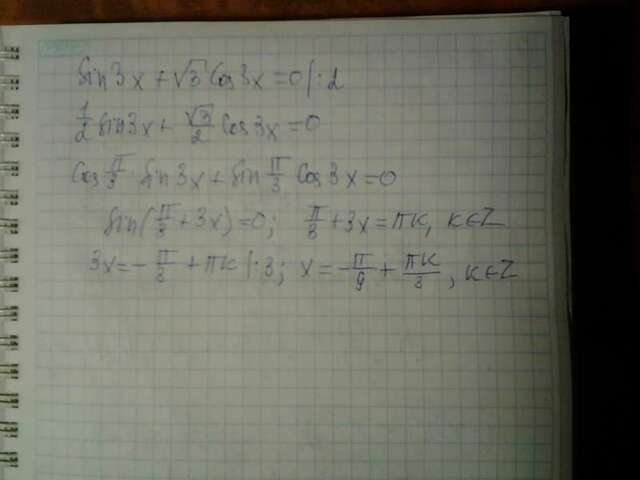 sin3x + √3 cos3x = 0 |:2
1/2 sin3x + √3/2 cos3x = 0
cos π/3 · sin3x + sin π/3 cos3x = 0
sin(π/3 + 3x) = 0; π/3 + 3x = πk, k∈Z
3x = -π/3 + πk |:3; x = -π/9 + πk/3, k∈Z